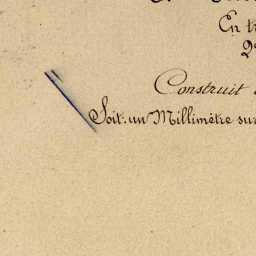 En tr
Construit
Soit: un Millimètre sur